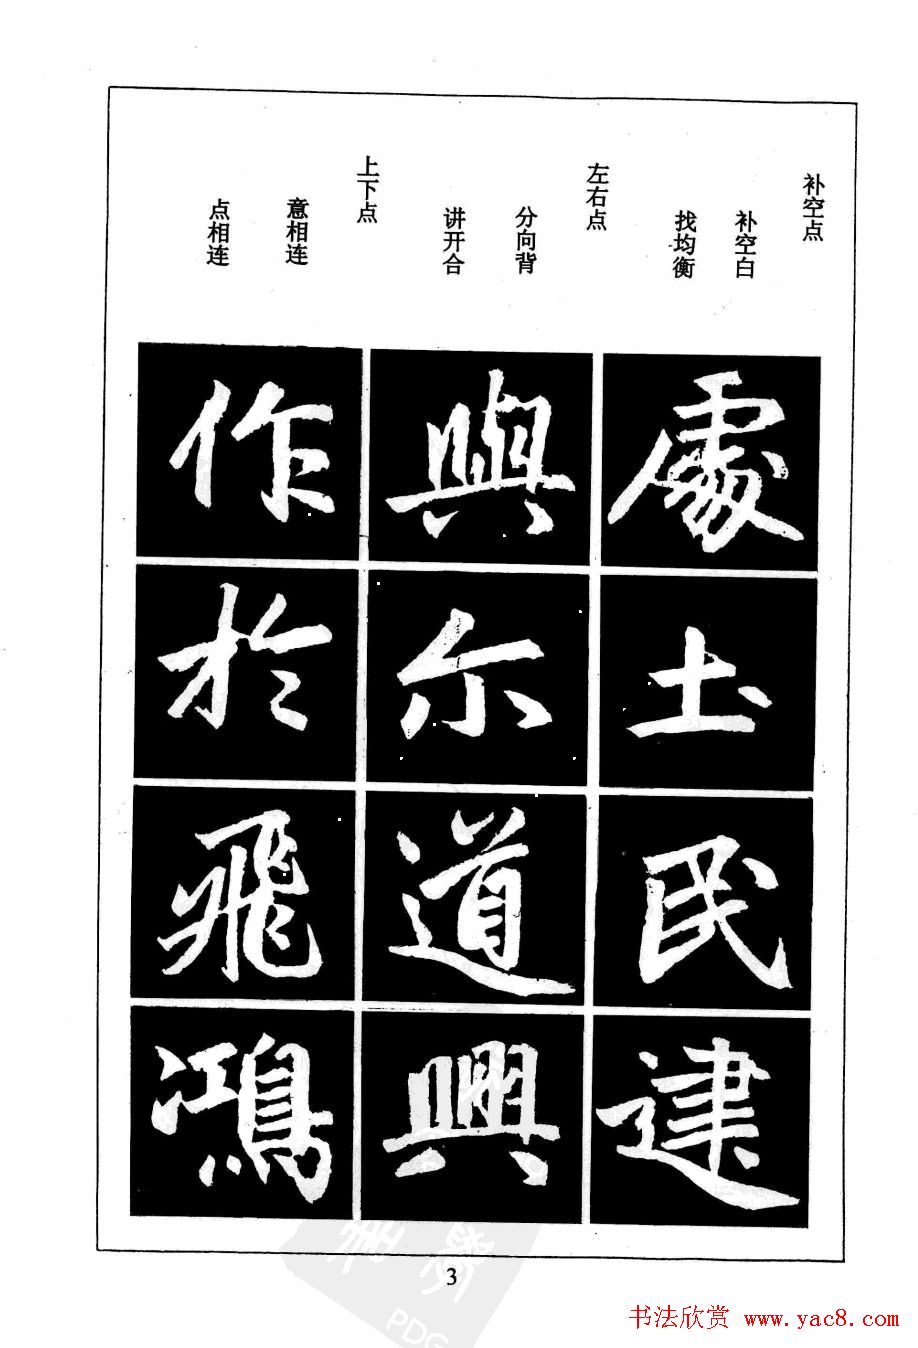 补空点
补空白
找均衡
左右点
分向背
讲开合
上下点
意相连
点相连
處土民建
與尔道興
作於飛鴻
3
书法欣赏 www.yac8.com